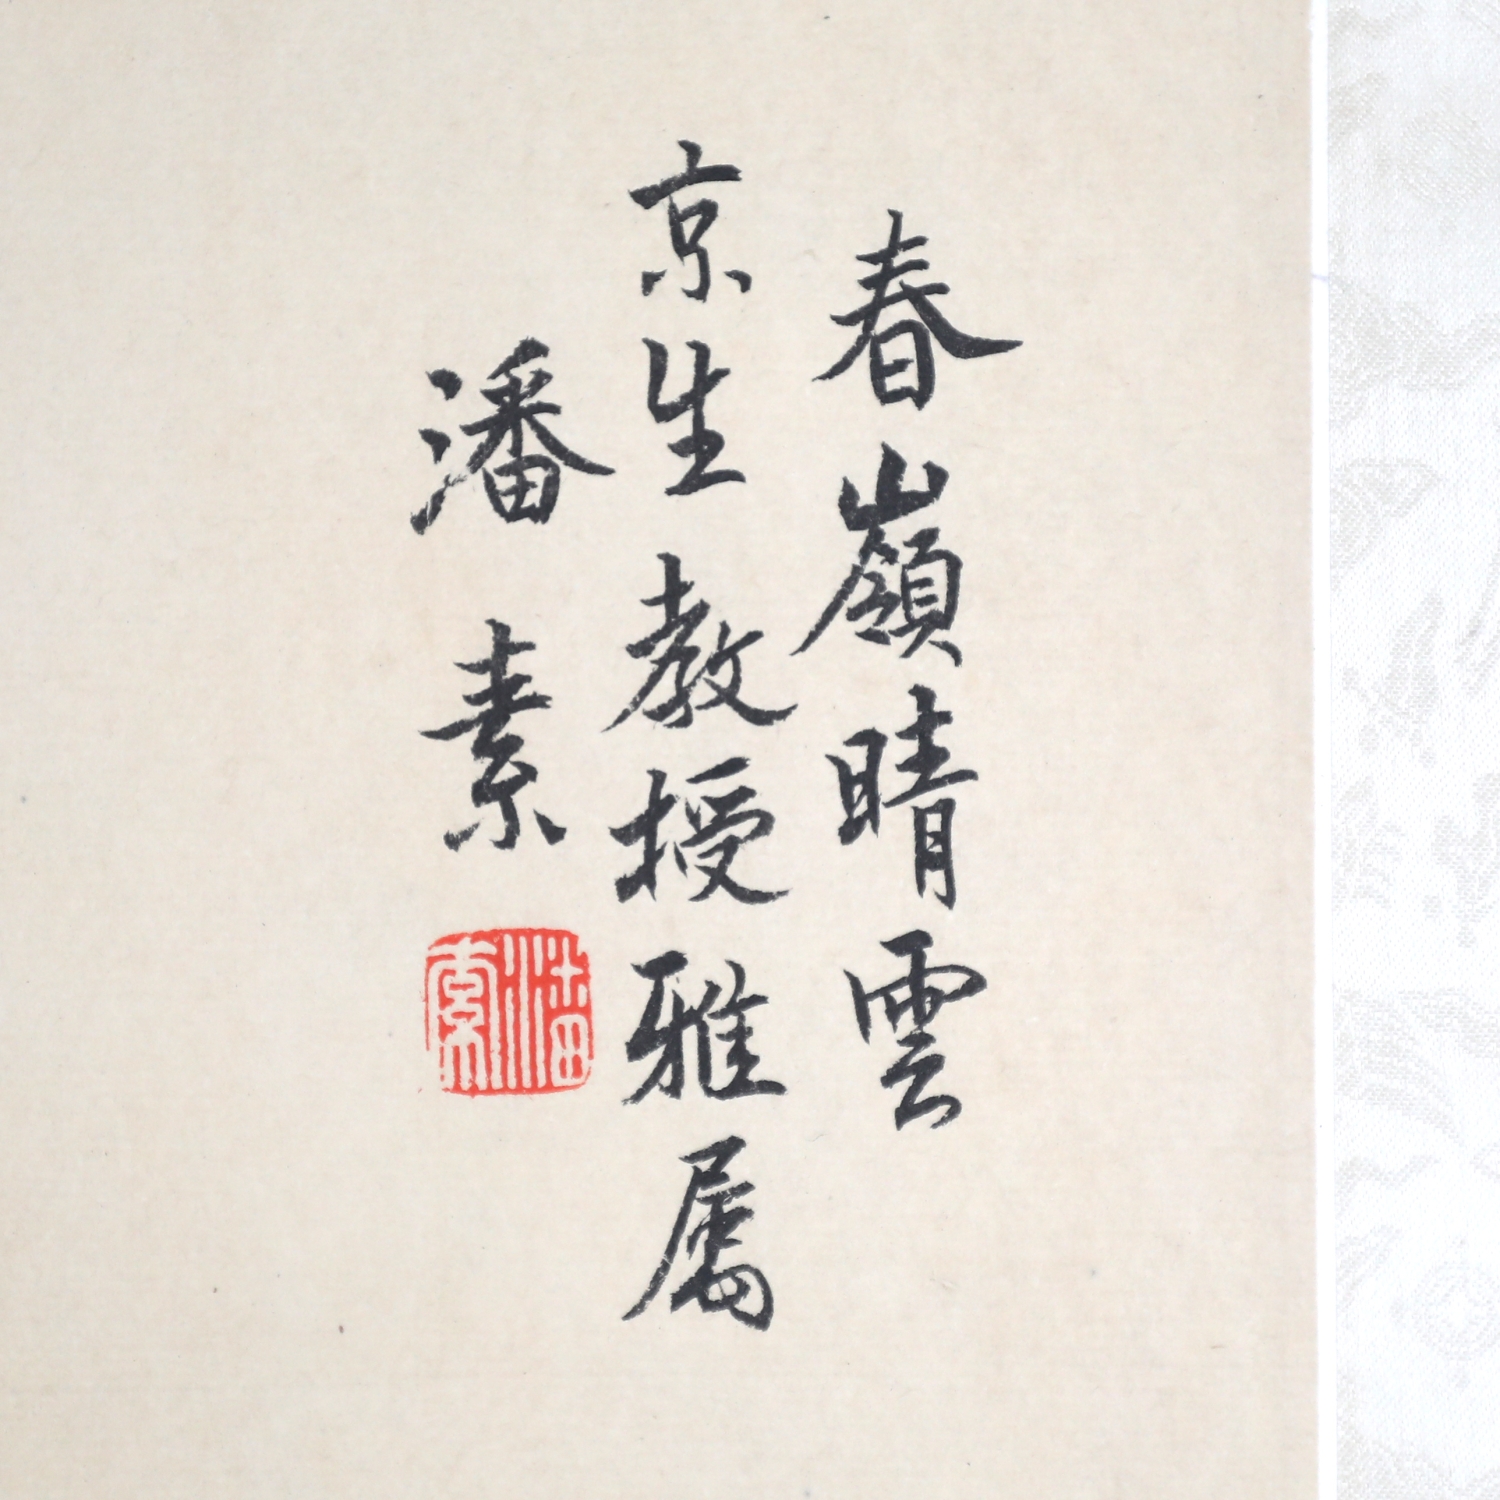 春嶺晴雲
京生教授雅属
潘素
潘素